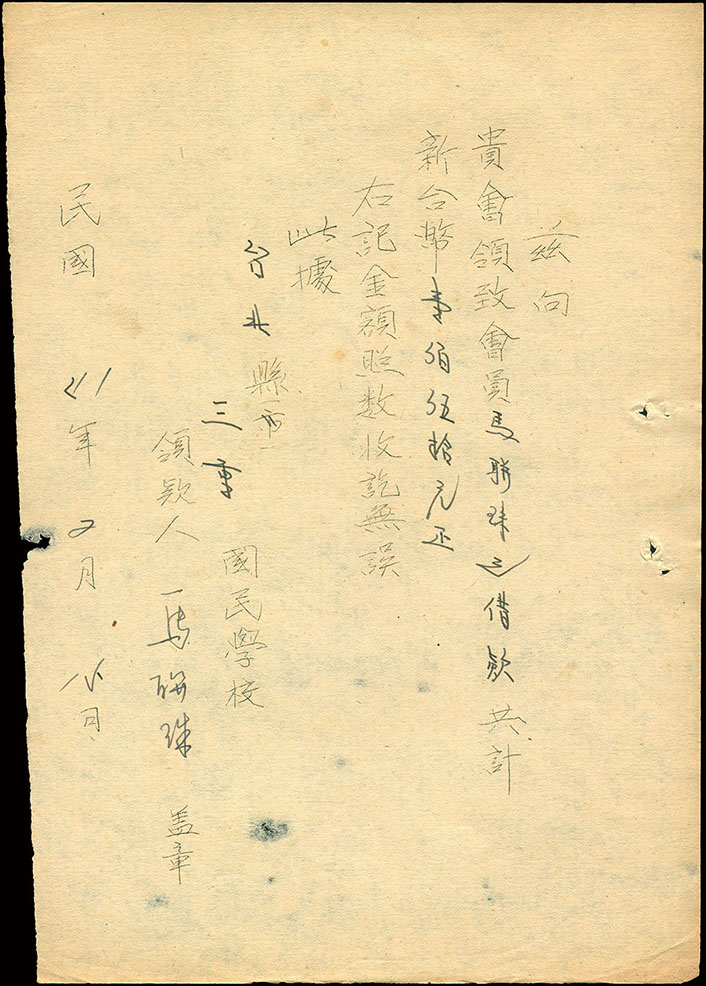 茲向
貴會領致會員馬聯珠之借款共計
新台幣壹佰伍拾元正
右記金額照数收訖無誤
此據
台北縣市三重國民學校
領款人 馬聯珠 盖章
民國 41年 2月 日